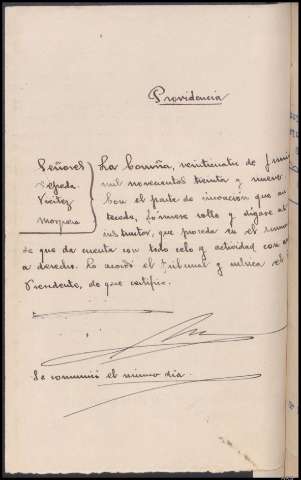 Providencia
Señores La Coruña, veinticuatro de Juni
Cepeda mil novecientos treinta y nueve.
Vicitez Con el parte de incoación que an
Mosquera tecede, fórmese rollo y dígase al
instructor, que proceda en el sumar
de que da cuenta con todo celo y actividad con a
a derecho. Lo acordó el Tribunal y rubrica el
Presidente, de que certifico.
Se comunicó el mismo día.